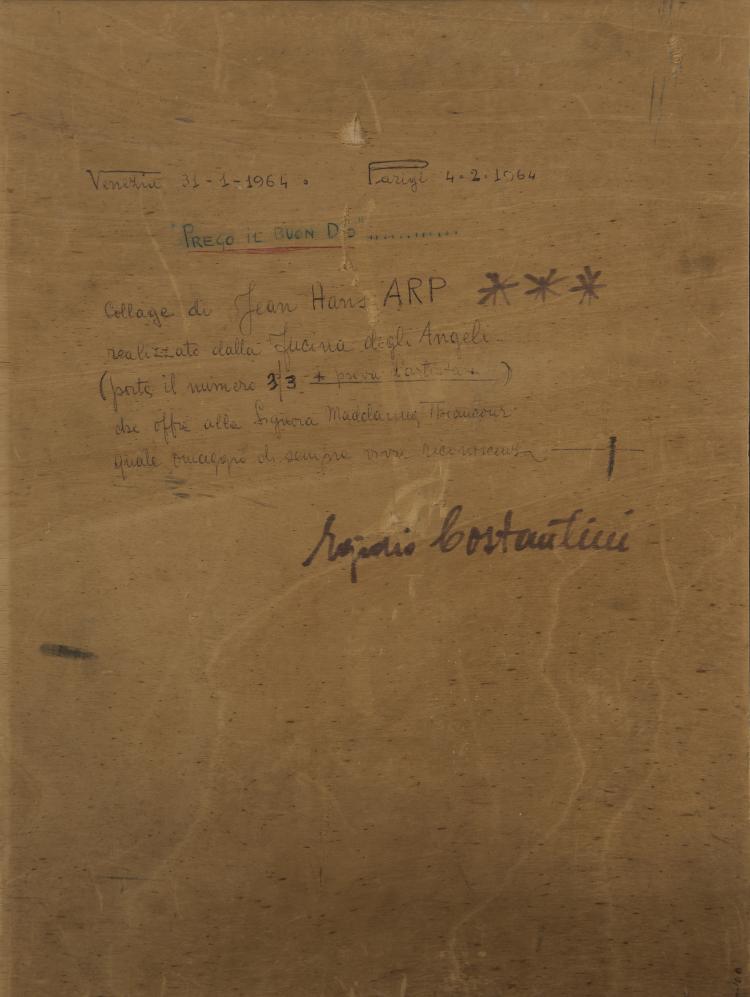 Venezia 31-1-1964. Parigi 4.2.1964
"PREGO IL BUON DIO" ............
Collage di Jean Hans ARP ***
realizzato dalla Fucina degli Angeli.
(porta il numero 3/3 + prova d'artista)
che offre alla Signora Madelaine
quale omaggio di sempre viva riconoscenza
Egidio Costantini